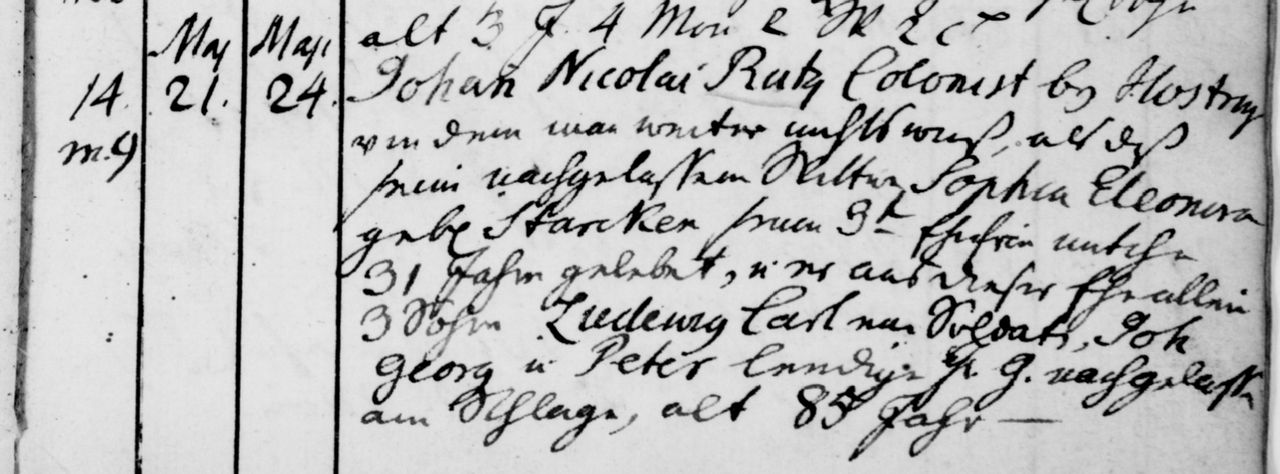 alt 3 J. 4 Mon 2
May Maji
14. 21. 24. Johan Nicolai Rutz Colonist by
m. 9 von dem man weiter nichts weiß, als daß
seine nachgelassene Wittwe, Sophia Eleonora
gebn Starcken seine 3te Ehefrau
31 Jahre gelebet, u er aus dieser Ehe allein
3 Söhne Ludewig Carl Soldat, Joh
Georg u Peter nachgelass
am Schlage, alt 85 Jahr —